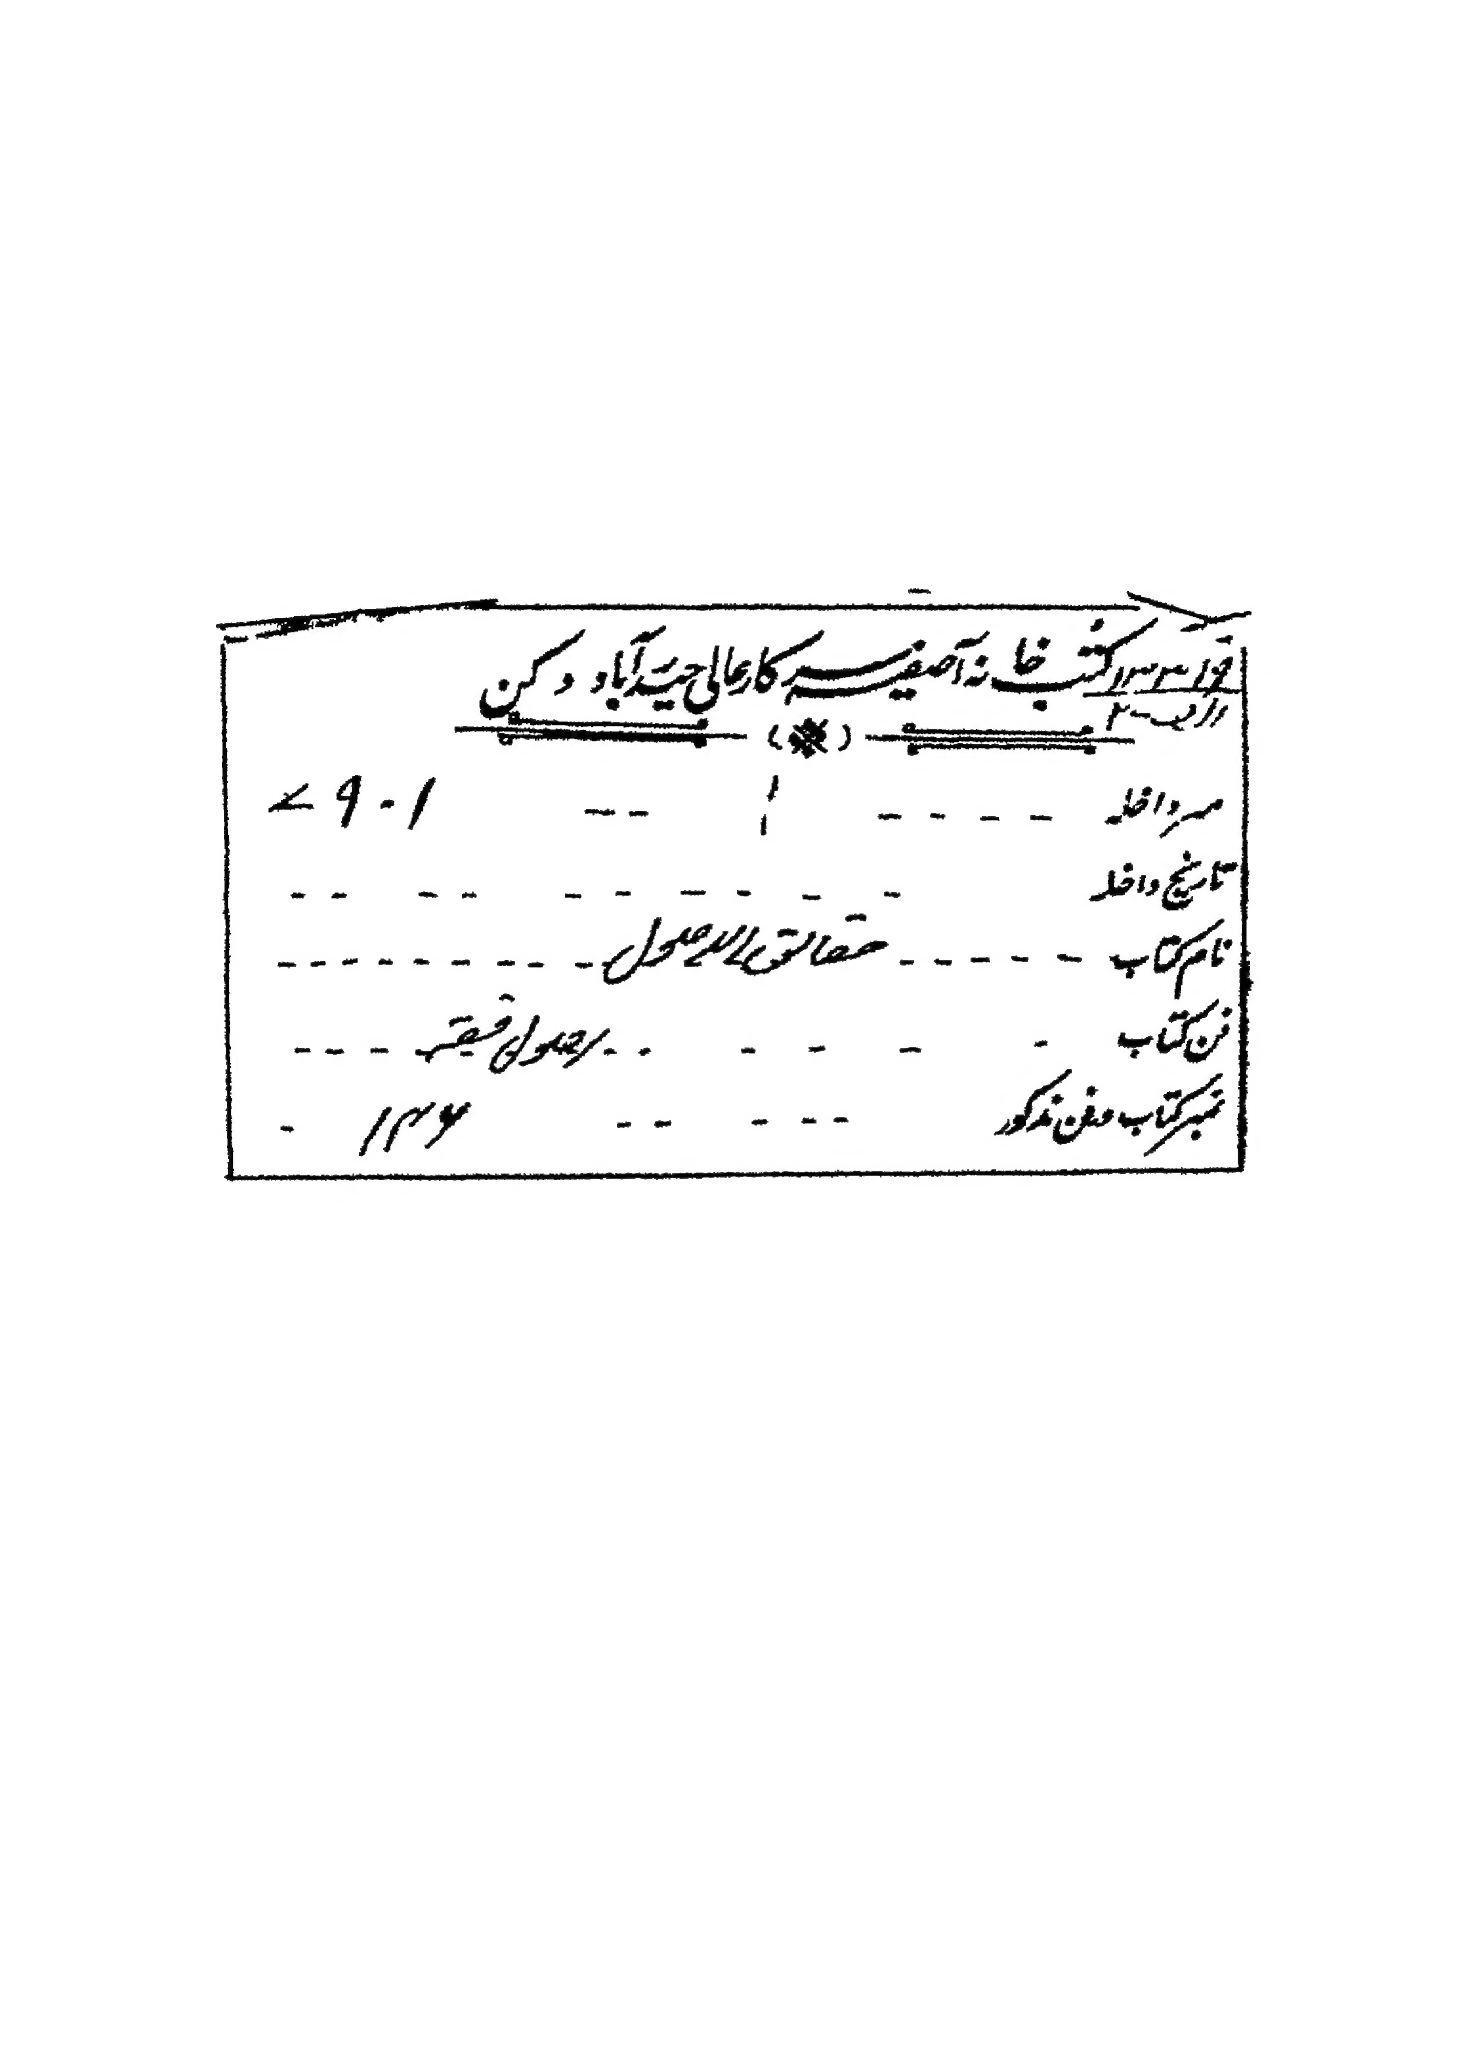 کتب خانہ آصفیہ سرکار عالی حیدرآباد دکن
نمبر داخلہ ۷۹۰۱
تاریخ داخلہ
نام کتاب حقائق الاصول
فن کتاب اصول فقہ
نمبر کتاب در فن مذکور ۱۳۶